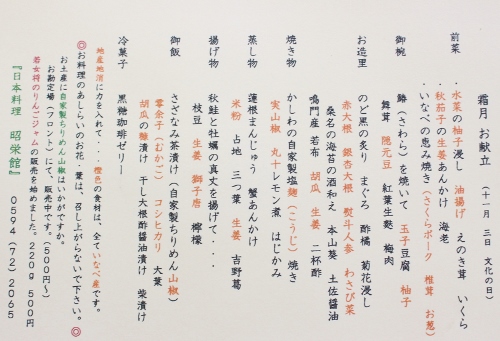 霜月 お献立 (十一月 三日 文化の日)
前菜 ・水菜の柚子浸し 油揚げ えのき茸 いくら
・秋茄子の生姜あんかけ 海老
・いなべの恵み焼き(さくらポーク 椎茸 お葱)
御椀 鰆(さわら)を焼いて 玉子豆腐 柚子
舞茸 隠元豆 紅葉生麩 梅肉
お造里 のど黒の炙り まぐろ 酢橘 菊花浸し
赤大根 銀杏大根 熨斗人参 わさび菜
桑名の海苔の酒和え 本山葵 土佐醤油
鳴門産 若布 胡瓜 生姜 二杯酢
焼き物 かしわの自家製塩麹(こうじ)焼き
実山椒 丸十レモン煮 はじかみ
蒸し物 蓮根まんじゅう 蟹あんかけ
米粉 占地 三つ葉 生姜 吉野葛
揚げ物 秋鮭と牡蠣の真丈を揚げて・・・
枝豆 生姜 獅子唐 檸檬
御飯 さざなみ茶漬け(自家製ちりめん山椒)
零余子(むかご) コシヒカリ 大葉
胡瓜の糠漬け 干し大根酢醤油漬け 柴漬け
冷菓子 黒糖珈琲ゼリー
地産地消に力を入れて・・・橙色の食材は、全ていなべ産です。
◎お料理のあしらいのお花・葉は、召し上がらないで下さい。◎
お土産に自家製ちりめん山椒はいかがですか。
お勘定場(フロント)にて、販売中です。(500円~)
若女将のりんごジャムの販売を始めました。220g 500円
『日本料理 昭栄館』 0594(72)2065